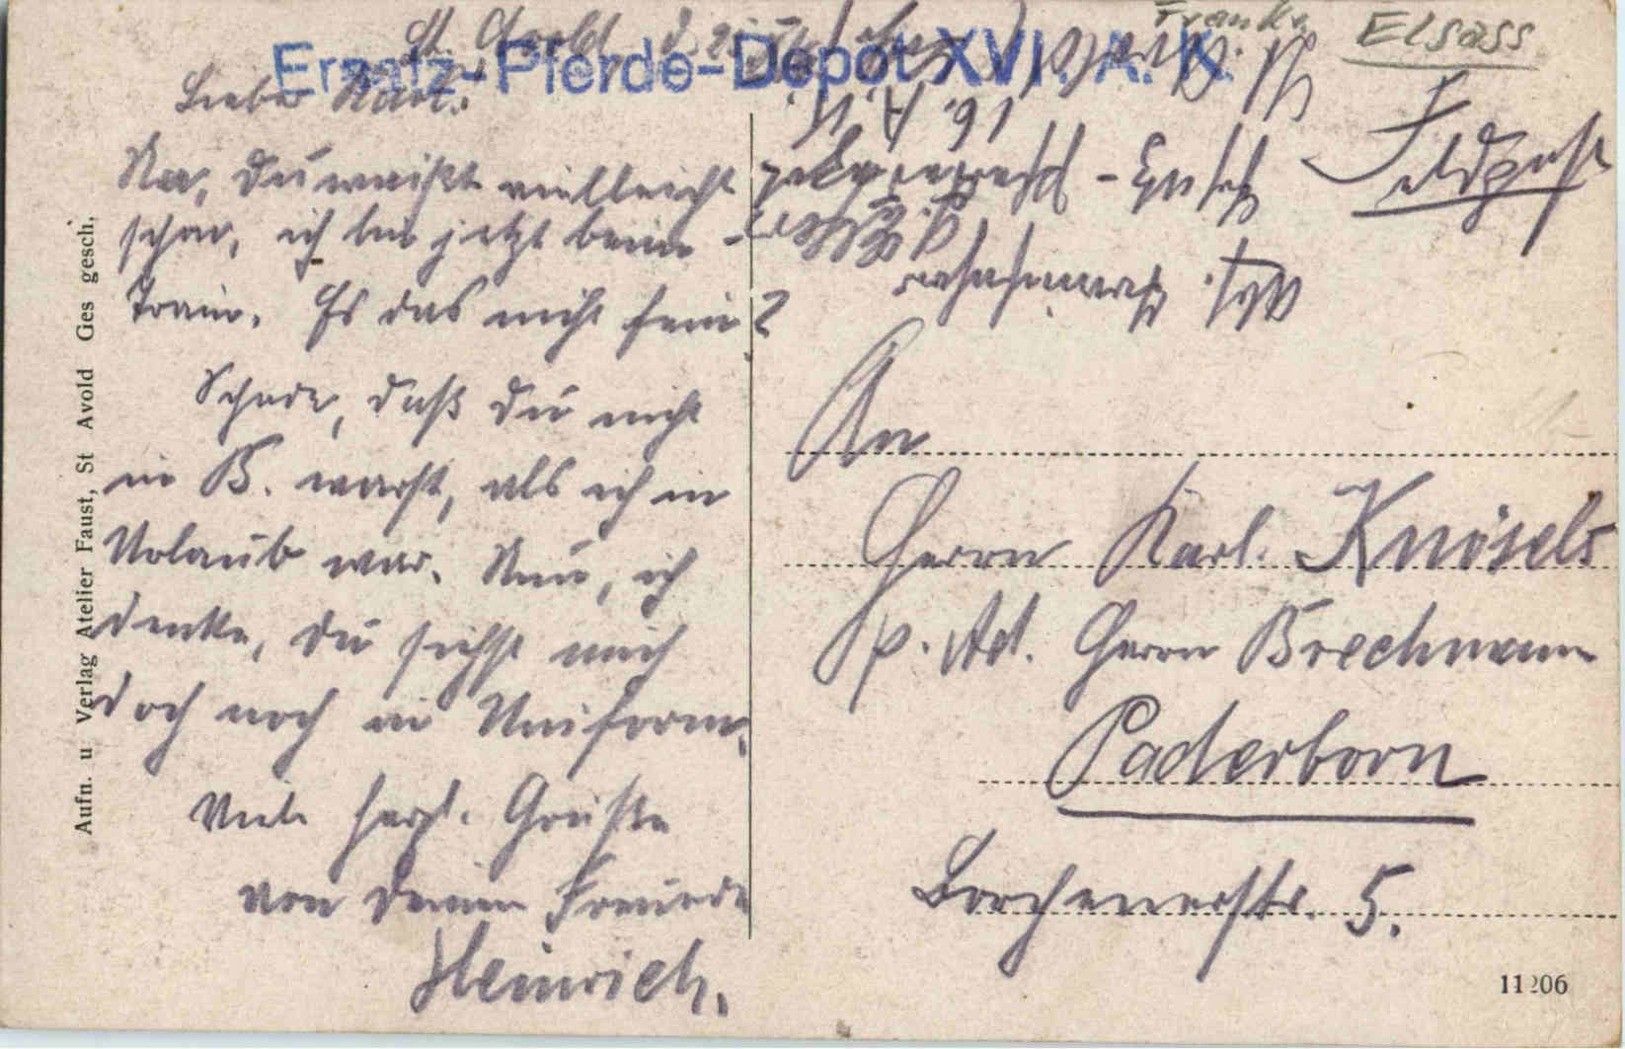 St. Avold, d.
Ersatz-Pferde-Depot XVI. A. K.
Lieber Karl.
Na, Du weißt vielleicht
schon, ich bin jetzt beim
Train. Ist das nicht fein?
Schade, daß Du nicht
in B. warst, als ich in
Urlaub war. Nun, ich
denke, Du siehst mich
doch noch in Uniform.
Viele herzl. Grüße
von Deinem Freunde
Heinrich.
Frankr.
Elsass
Feldpost
Abs.
Ersatz-Pferdedepot
16. A. K.
St. Avold
An
Herrn Karl Knösels
p. Ad. Herrn Brechmann
Paderborn
Borchenerstr. 5.
Aufn. u Verlag Atelier Faust, St Avold Ges gesch.
11206